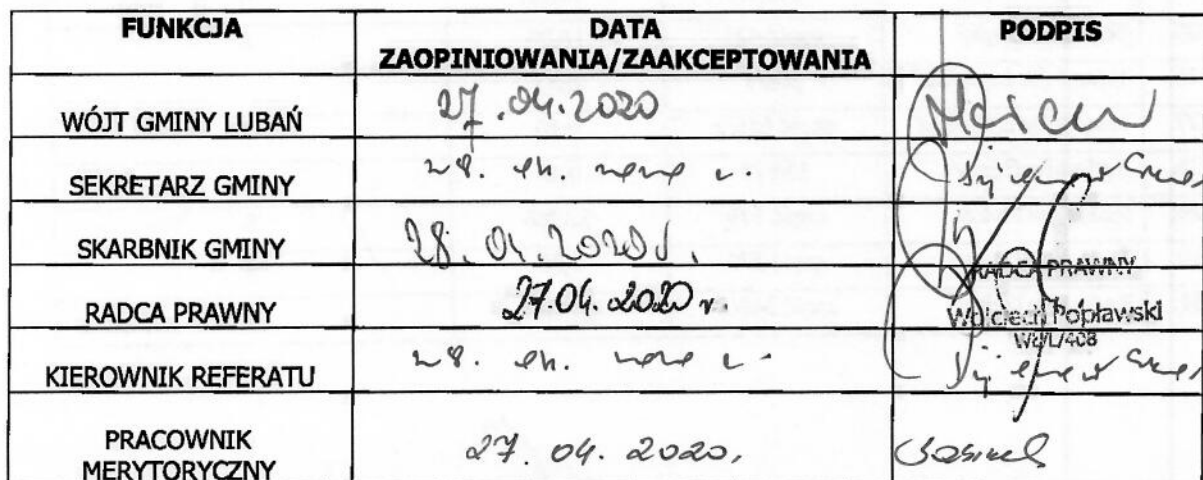 FUNKCJA DATA PODPIS
ZAOPINIOWANIA/ZAAKCEPTOWANIA
WÓJT GMINY LUBAŃ 27.04.2020
SEKRETARZ GMINY 28. 04. 2020 r.
SKARBNIK GMINY 28. 04. 2020 r.
RADCA PRAWNY
RADCA PRAWNY 27.04.2020 r. Wojciech Popławski
KIEROWNIK REFERATU 28. 04. 2020 r.
PRACOWNIK
MERYTORYCZNY 27. 04. 2020,